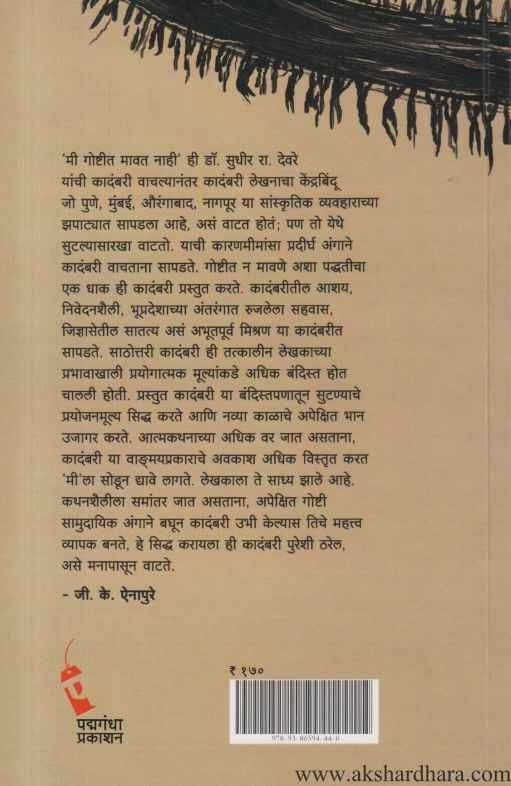 'मी गोष्टीत मावत नाही' ही डॉ. सुधीर रा. देवरे
यांची कादंबरी वाचल्यानंतर कादंबरी लेखनाचा केंद्रबिंदू
जो पुणे, मुंबई, औरंगाबाद, नागपूर या सांस्कृतिक व्यवहाराच्या
झपाट्यात सापडला आहे, असं वाटत होतं; पण तो येथे
सुटल्यासारखा वाटतो. याची कारणमीमांसा प्रदीर्घ अंगाने
कादंबरी वाचताना सापडते. गोष्टीत न मावणे अशा पद्धतीचा
एक धाक ही कादंबरी प्रस्तुत करते. कादंबरीतील आशय,
निवेदनशैली, भूप्रदेशाच्या अंतरंगात रुजलेला सहवास,
जिज्ञासेतील सातत्य असं अभूतपूर्व मिश्रण या कादंबरीत
सापडते. साठोत्तरी कादंबरी ही तत्कालीन लेखकाच्या
प्रभावाखाली प्रयोगात्मक मूल्यांकडे अधिक बंदिस्त होत
चालली होती. प्रस्तुत कादंबरी या बंदिस्तपणातून सुटण्याचे
प्रयोजनमूल्य सिद्ध करते आणि नव्या काळाचे अपेक्षित भान
उजागर करते. आत्मकथनाच्या अधिक वर जात असताना,
कादंबरी या वाङ्मयप्रकाराचे अवकाश अधिक विस्तृत करत
'मी'ला सोडून द्यावे लागते. लेखकाला ते साध्य झाले आहे.
कथनशैलीला समांतर जात असताना, अपेक्षित गोष्टी
सामुदायिक अंगाने बघून कादंबरी उभी केल्यास तिचे महत्त्व
व्यापक बनते, हे सिद्ध करायला ही कादंबरी पुरेशी ठरेल,
असे मनापासून वाटते.
- जी. के. ऐनापुरे
₹ १७०
पद्मगंधा
प्रकाशन
978-93-86594-44-0
www.akshardhara.com